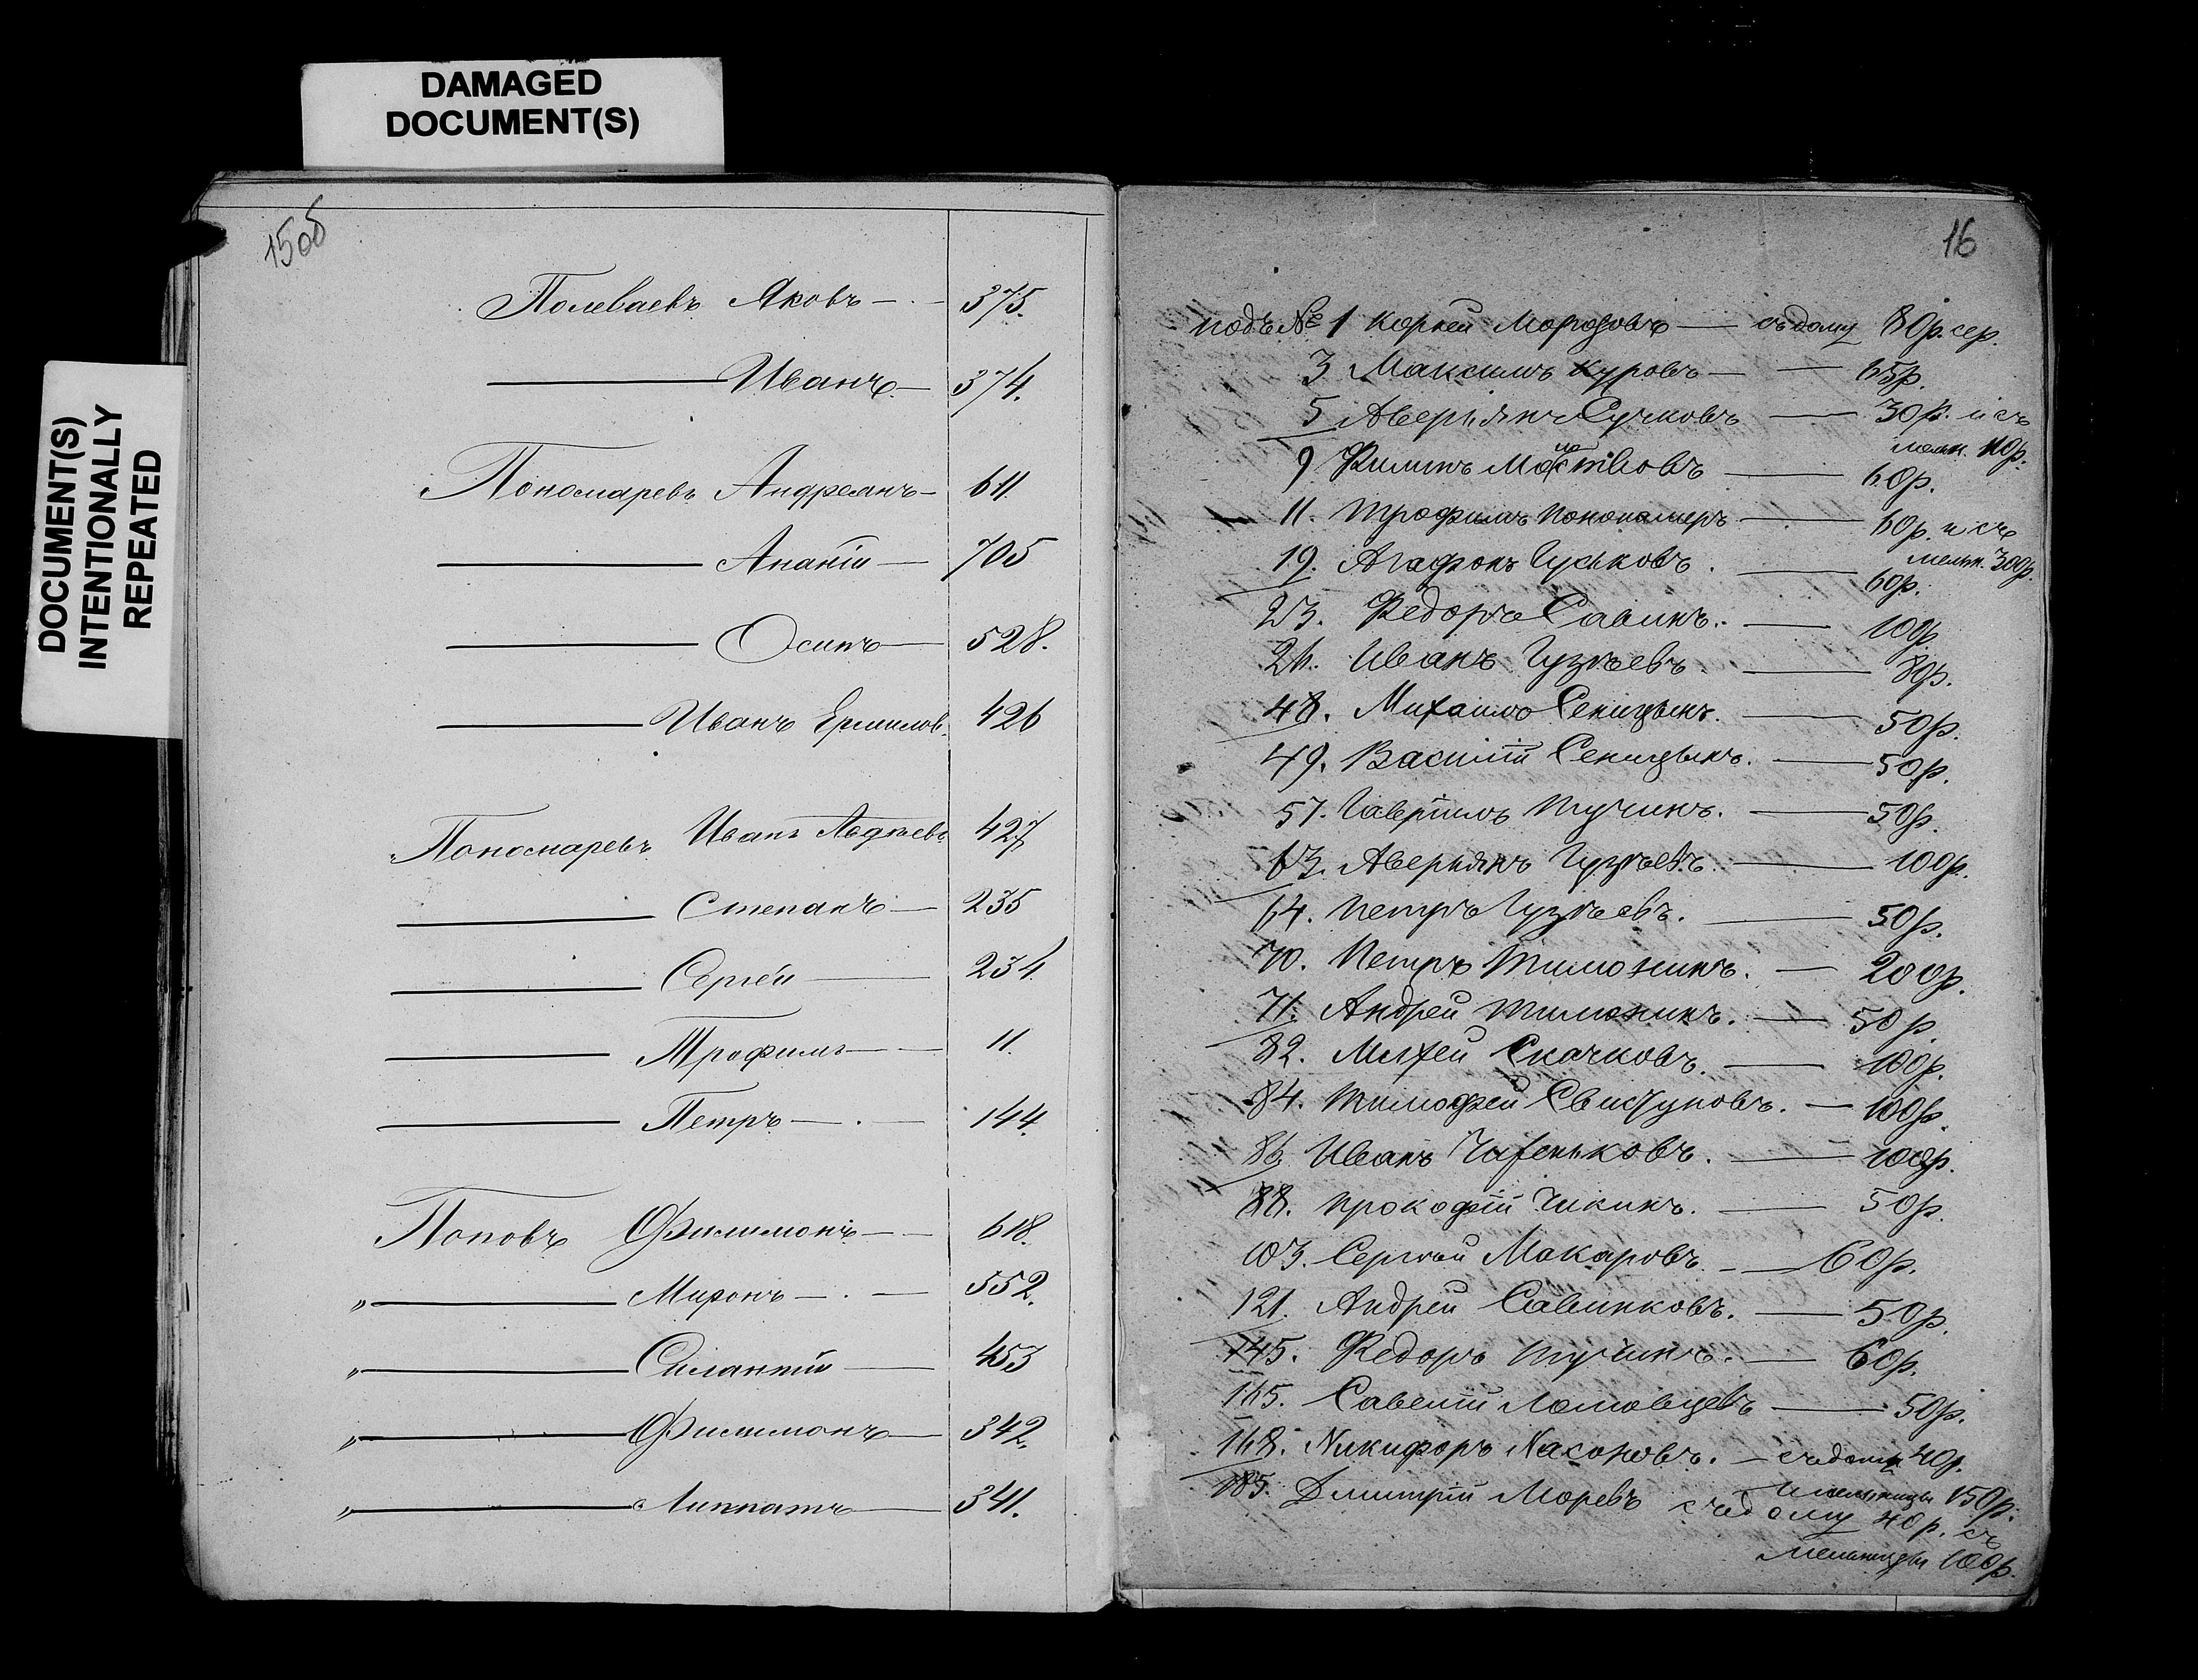 DAMAGED
DOCUMENT(S)
DOCUMENT(S)
INTENTIONALLY
REPEATED
15об
Полеваевъ Яковъ — 375.
Иванъ — 374.
Пономаревъ Андреянъ — 611.
Ананій — 705
Осипъ — 528.
Иванъ Ермилов. 426
Пономаревъ Иванъ Авдѣевъ 427
Степанъ — 235
Сергѣй — 234.
Трофимъ — 11.
Петръ — 144.
Поповъ Филимонъ — 618.
„ Миронъ — 552.
„ Силантій — 453
„ Филимонъ — 342.
„ Липпатъ — 341.
16
подъ № 1 Корней Морозовъ — съ дому 80р. сер.
3 Максимъ Куровъ — 65р.
5 Аверьянъ Сучковъ — 30р. и съ
мельн. 110р.
9 Филипъ — 60р.
11. Трофимъ Понономеръ — 60р. и съ
мельн. 300р.
19. Агафонъ Гуськовъ. — 60р.
23. Федоръ Савинъ. — 100р
26. Иванъ Гузѣевъ. — 80р.
48. Михаилъ Сеницынъ. — 50р.
49. Василій Сеницынъ. — 50р.
57. Гавріилъ Тучинъ. — 50р.
63. Аверьянъ Гузѣевъ. — 100р.
64. Петръ Гузѣевъ. — 50р.
70. Петръ Тимохинъ. — 200р.
71. Андрей Тимохинъ. — 50р.
82. Михей Скачковъ. — 100р.
84. Тимофей Свистуновъ. — 100р.
86. Иванъ Чихеньковъ. — 100р.
88. Прокофій Чикинъ. — 50р.
103. Сергѣй Макаровъ. — 60р.
121. Андрей Савинковъ. — 50р.
145. Федоръ Тучинъ. — 60р.
165. Савелій Ломовцевъ — 50р.
168. Никифоръ Насоновъ. — съ дому 40р.
и мельницы 150р.
185. Дмитрій Моревъ съ дому 40р. съ
мельницы 100р.